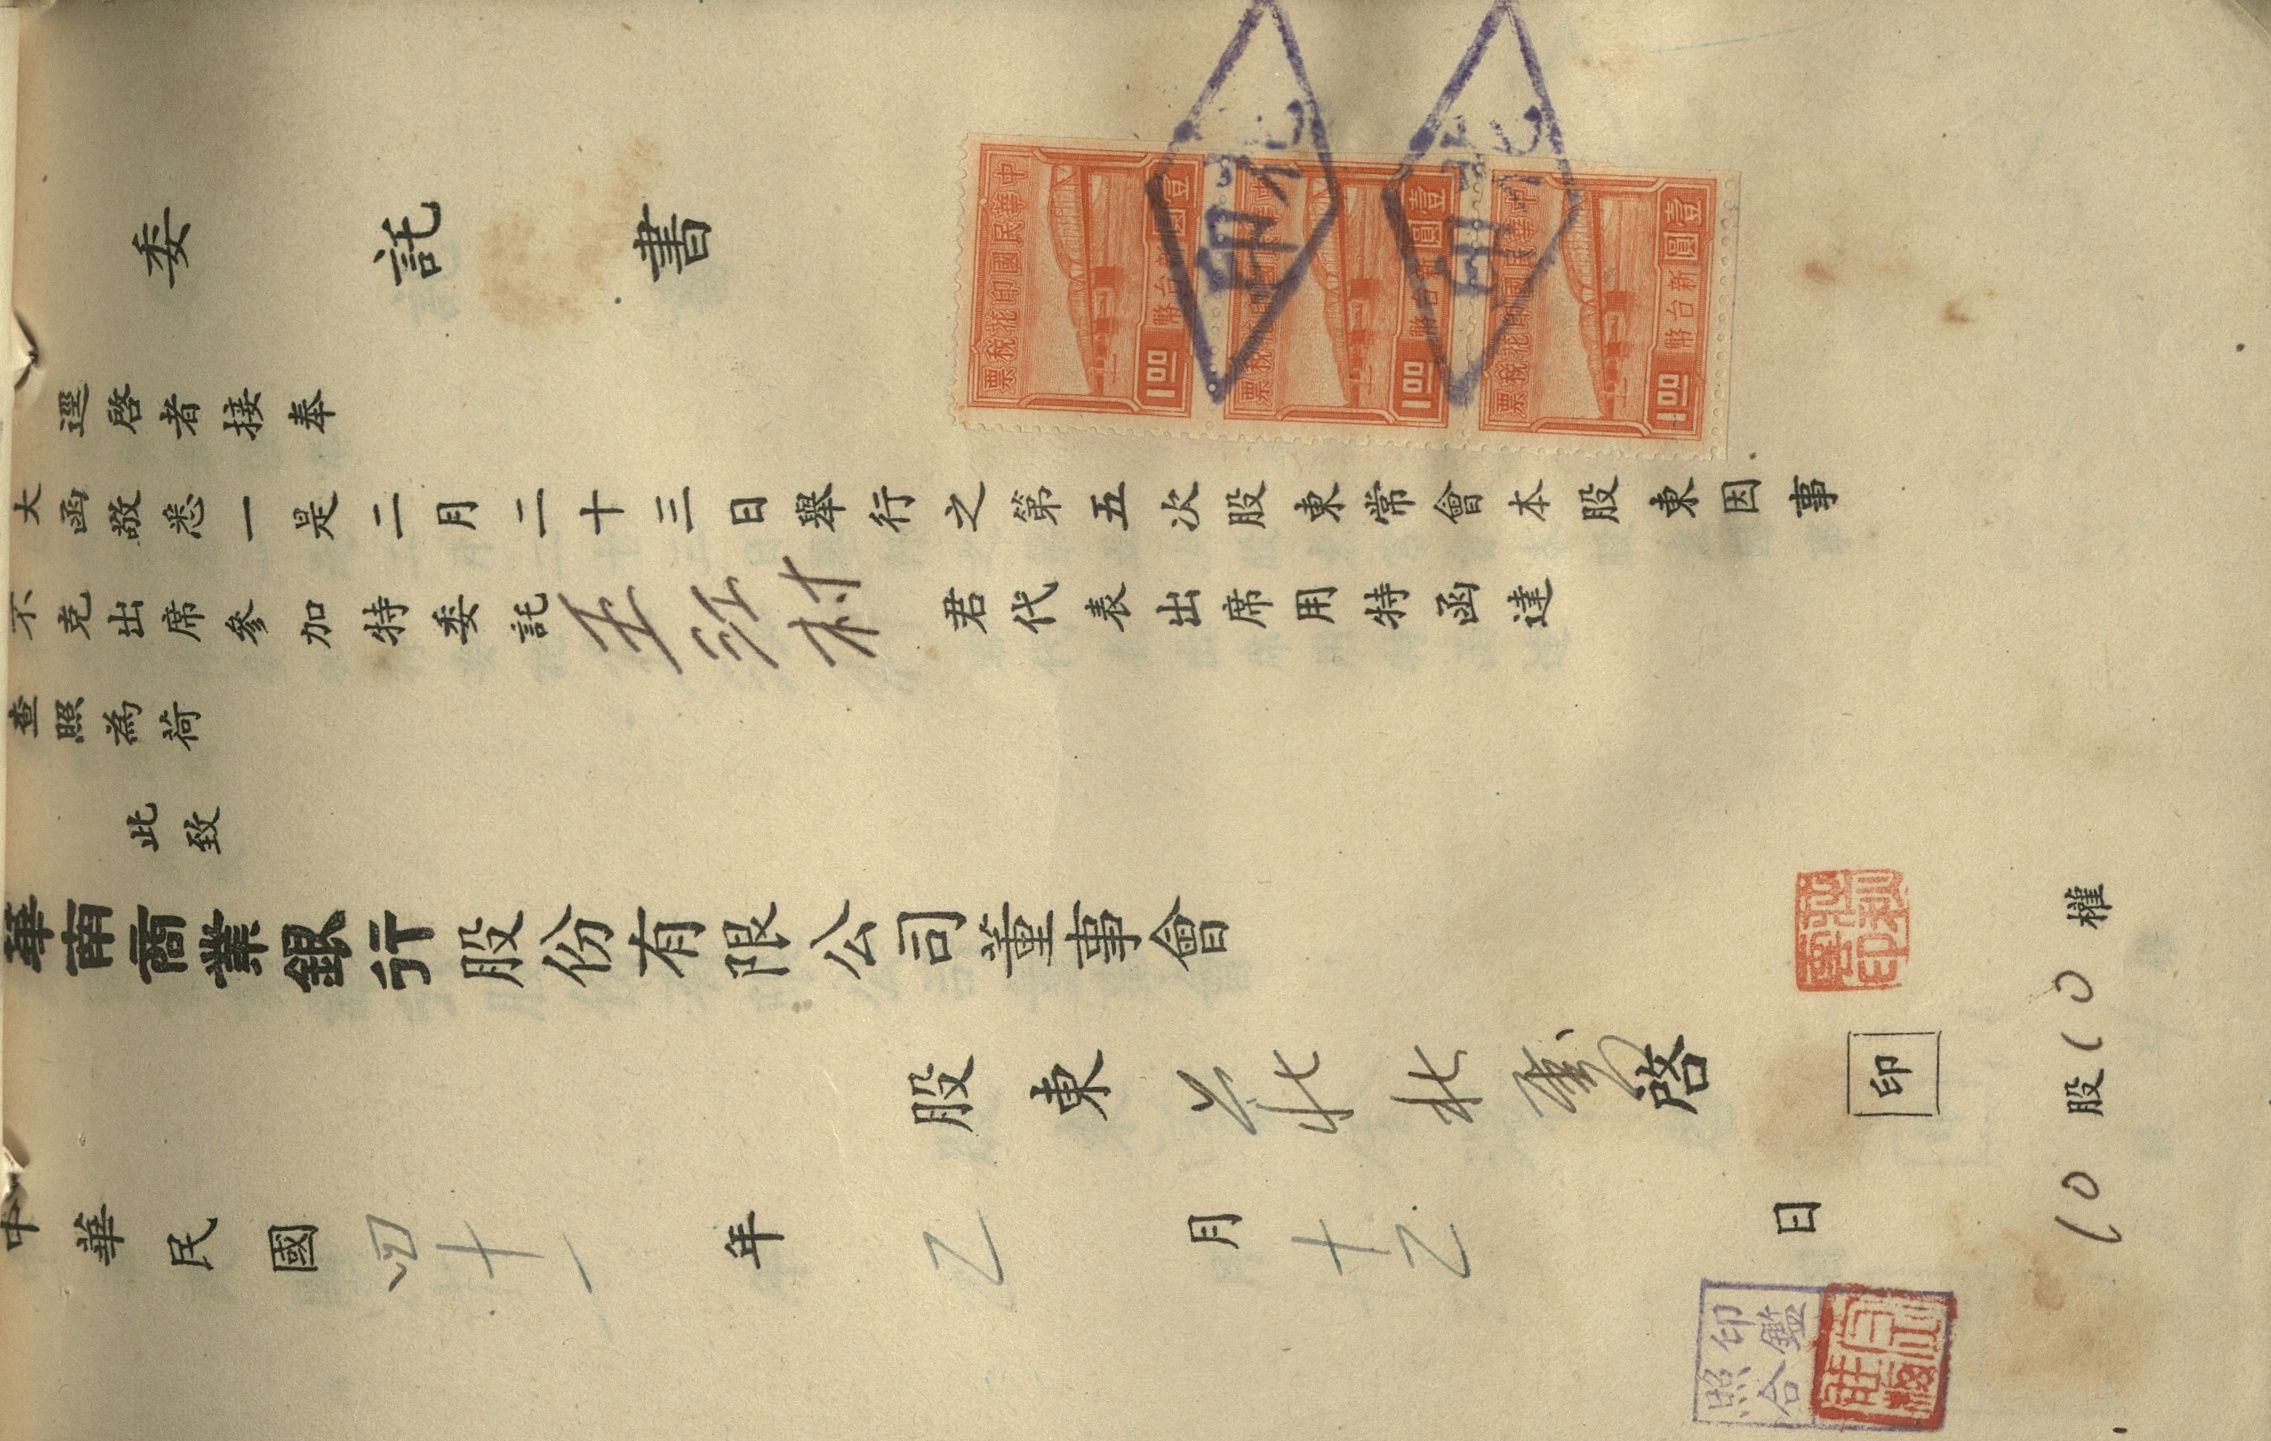 委託書
逕啓者接奉
大函敬悉一是二月二十三日舉行之第五次股東常會本股東因事
不克出席參加特委託王江村君代表出席用特函達
查照為荷
此致
華南商業銀行股份有限公司董事會
股東 啓 印
中華民國四十一年乙月十乙日
10股10權
中華民國印花稅票
壹圓
新台幣
1.00
中華民國印花稅票
壹圓
新台幣
1.00
中華民國印花稅票
壹圓
新台幣
1.00
印花
印花
印鑑
照合